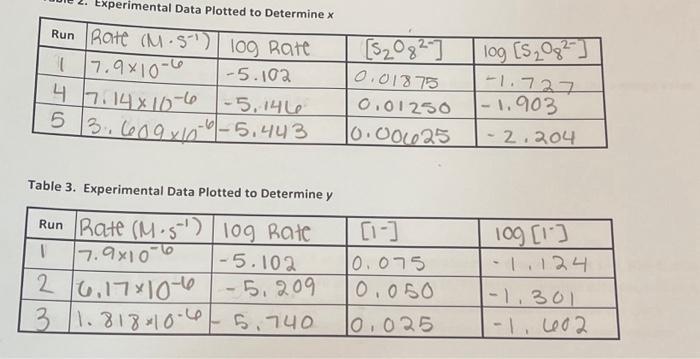 2. Experimental Data Plotted to Determine x
Run Rate (M·s⁻¹) log Rate [S₂O₈²⁻] log [S₂O₈²⁻]
1 7.9×10⁻⁶ -5.102 0.01875 -1.727
4 7.14×10⁻⁶ -5.146 0.01250 -1.903
5 3.609×10⁻⁶ -5.443 0.00625 -2.204
Table 3. Experimental Data Plotted to Determine y
Run Rate (M·s⁻¹) log Rate [I-] log [I-]
1 7.9×10⁻⁶ -5.102 0.075 -1.124
2 6.17×10⁻⁶ -5.209 0.050 -1.301
3 1.818×10⁻⁶ -5.740 0.025 -1.602